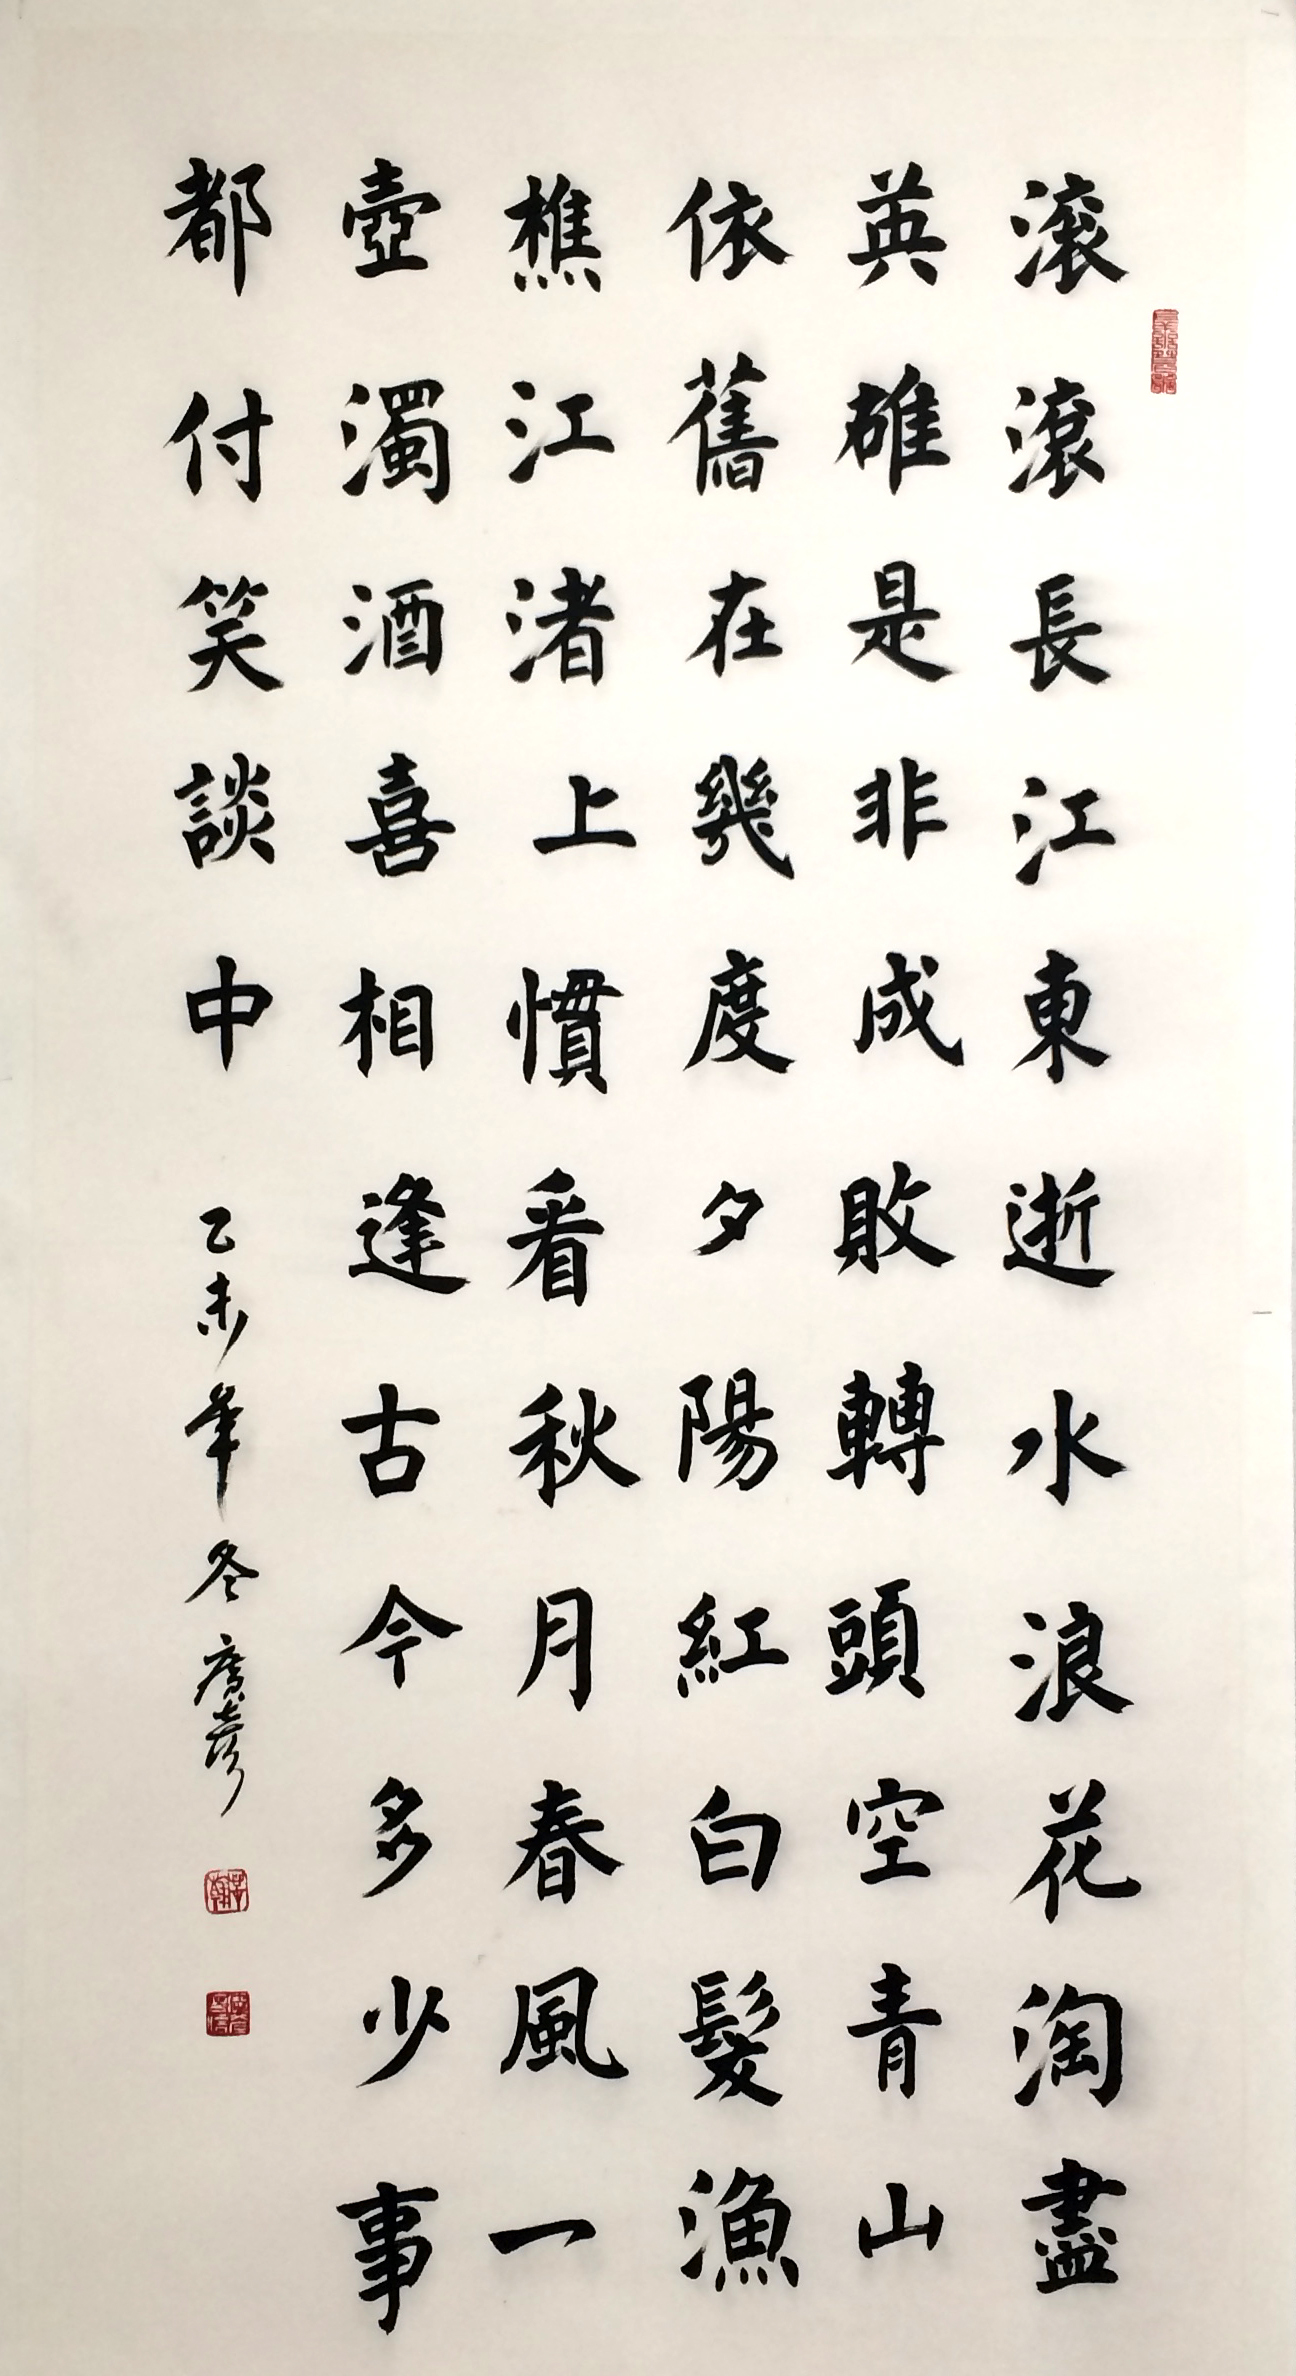 滚滾長江東逝水浪花淘盡
英雄是非成敗轉頭空青山
依舊在幾度夕陽紅白髮漁
樵江渚上慣看秋月春風一
壺濁酒喜相逢古今多少事
都付笑談中
乙未年冬廣彥